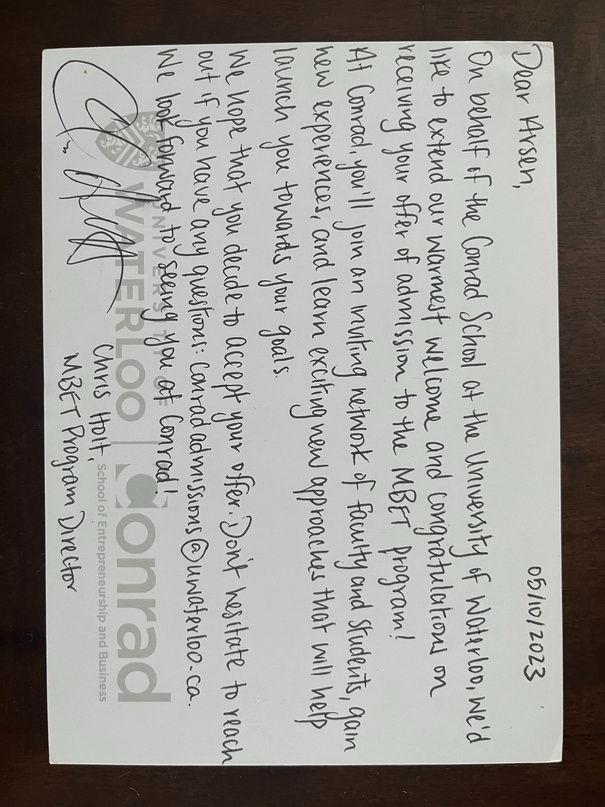 05/10/2023
Dear Arsen,
On behalf of the Conrad School at the University of Waterloo, we'd
like to extend our warmest welcome and congratulations on
receiving your offer of admission to the MBET program!
At Conrad, you'll join an inviting network of faculty and students, gain
new experiences, and learn exciting new approaches that will help
launch you towards your goals.
We hope that you decide to accept your offer. Don't hesitate to reach
out if you have any questions: conradadmissions@uwaterloo.ca.
We look forward to seeing you at Conrad!
Chris Hoit,
MBET Program Director
UNIVERSITY OF
WATERLOO
Conrad
School of Entrepreneurship and Business